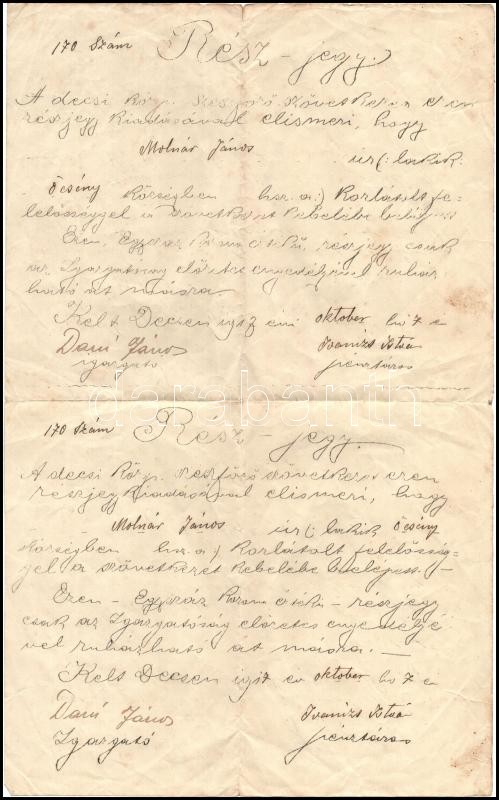 170 Szám Rész - jegy.
A decsi közp. szeszfőző szövetkezet ezen
részjegy kiadásával elismeri, hogy
Molnár János
úr (: lakik
Őcsény községben hsz. a :) korlátolt fe-
lelősséggel a szövetkezet kebelébe belépett
Ezen, Egyszáz Korona értékű, részjegy csak
az Igazgatóság előzetes engedélyével ruház
ható át másra.
Kelt Decsen 1917 évi oktober hó 7 é
Dani János
igazgató
Ivanizs Istvá
pénztáros
darabanth
170 Szám Rész - jegy.
A decsi közp. szeszfőző szövetkezet ezen
részjegy kiadásával elismeri, hogy
Molnár János úr (: lakik Őcsény
községben hsz. a :) korlátolt felelőssé-
gel a szövetkezet kebelébe belépett. -
Ezen - Egyszáz Korona értékű - részjegy
csak az Igazgatóság előzetes engedélyé
vel ruházható át másra. -
Kelt Decsen 1917 év oktober hó 7 é
Dani János
Igazgató
Ivanizs Istvá
pénztáros